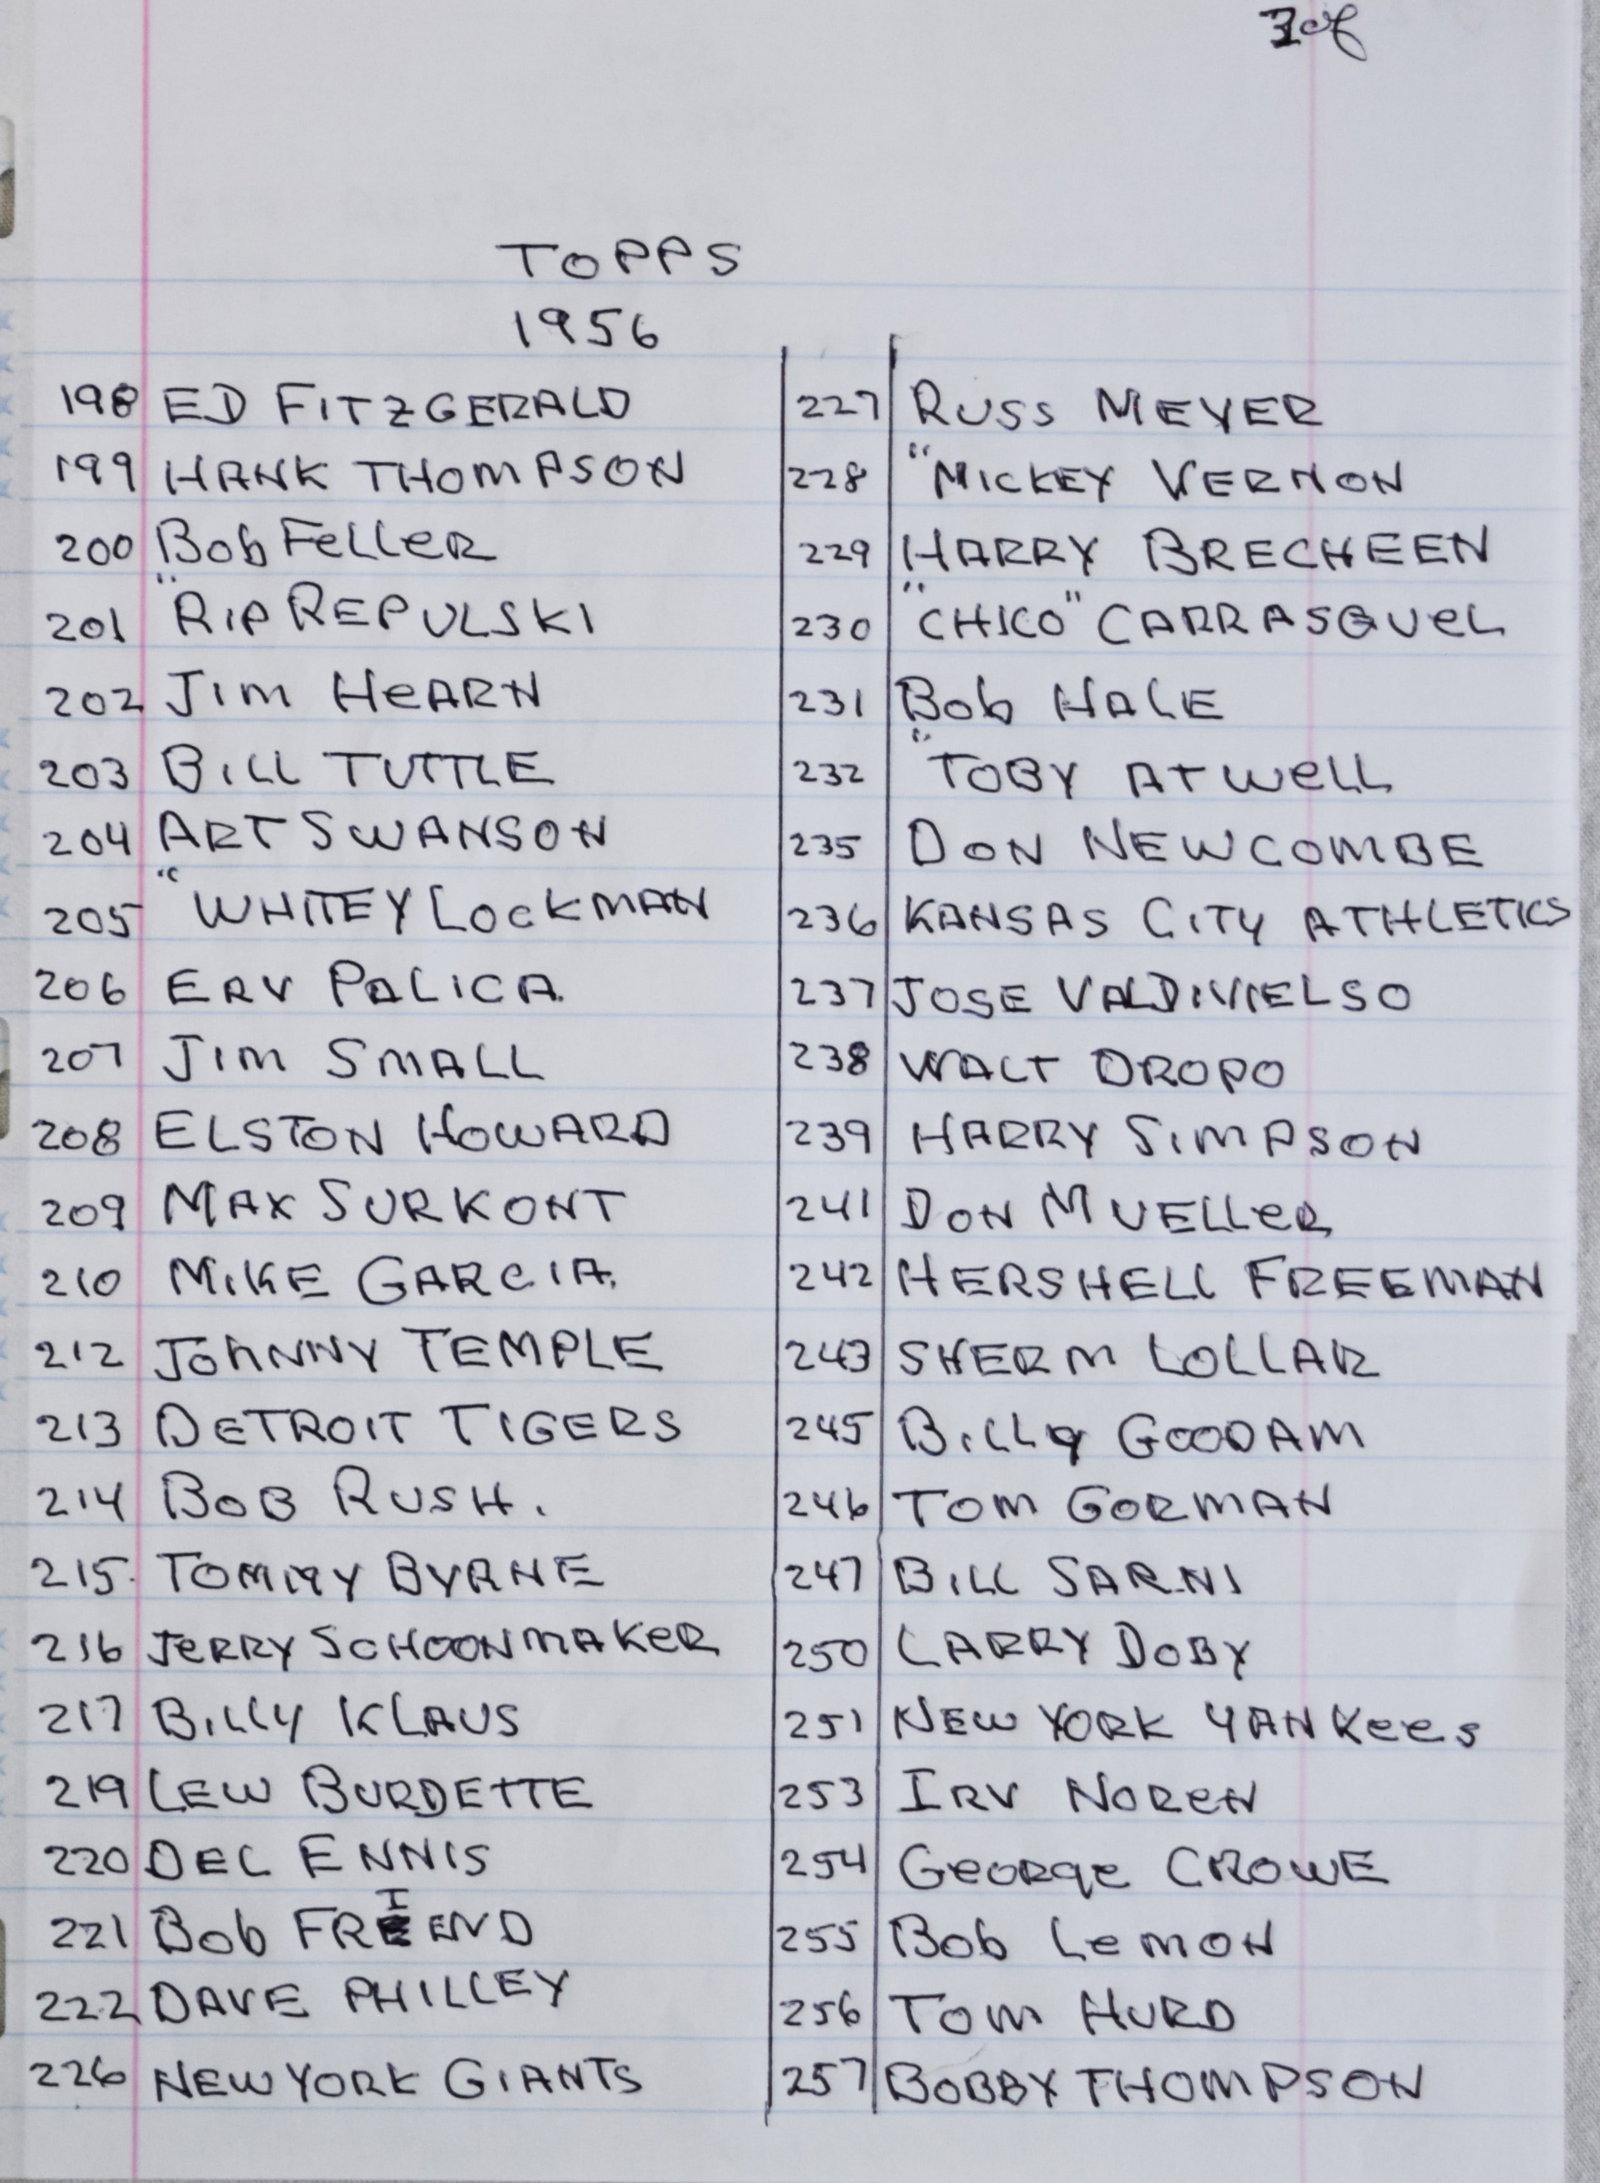 3 of
TOPPS
1956
198 ED FITZGERALD
199 HANK THOMPSON
200 Bob FelleR
201 "RIP REPULSKI
202 JIM HeARN
203 BILL TUTTLE
204 ART SWANSON
205 "WHITEY LOCKMAN
206 ERV PALICA.
207 JIM SMALL
208 ELSTON HOWARD
209 MAX SURKONT
210 MIKE GARCIA.
212 JOhNNY TEMPLE
213 DETROIT TIGERS
214 BOB RUSH.
215. TOMMY BYRNE
216 JeRRY SCHOONMAKeR
217 BILLY KLAUS
219 LEW BURDETTE
220 DEL ENNIS
221 Bob FRIEND
222 DAVE PHILLEY
226 NEW YORK GIANTS
227 RUSS MEYER
228 "MICKEY VERNON
229 HARRY BRECHEEN
230 "CHICO" CARRASQUeL
231 Bob HALE
232 "TOBY ATWeLL
235 DON NEWCOMBE
236 KANSAS CITY ATHLETICS
237 JOSE VALDIVIELSO
238 WALT DROPO
239 HARRY SIMPSON
241 DON MUELLeR
242 HERSHELL FREEMAN
243 SHERM LOLLAR
245 BILLy GOODAM
246 TOM GORMAN
247 BILL SARNI
250 LARRY DOBY
251 NEW YORK YANKees
253 IRV NOReN
254 GeORge CROWE
255 Bob LeMON
256 TOM HURD
257 BOBBY THOMPSON